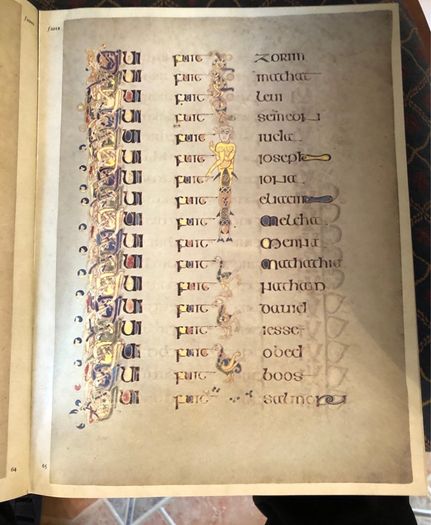 f201r
QUI fuit zorim
QUI fuit mathat
QUI fuit leui
QUI fuit semeon
QUI fuit iuda
QUI fuit ioseph
QUI fuit iona
QUI fuit eliacim
QUI fuit melcha
QUI fuit menna
QUI fuit mathathia
QUI fuit nathan
QUI fuit dauid
QUI fuit iesse
QUI fuit obed
QUI fuit boos
QUI fuit salmon
64
65